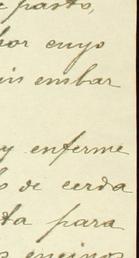 pasto,
por cuyo
sin embar
y enferme
s de cerda
ta para